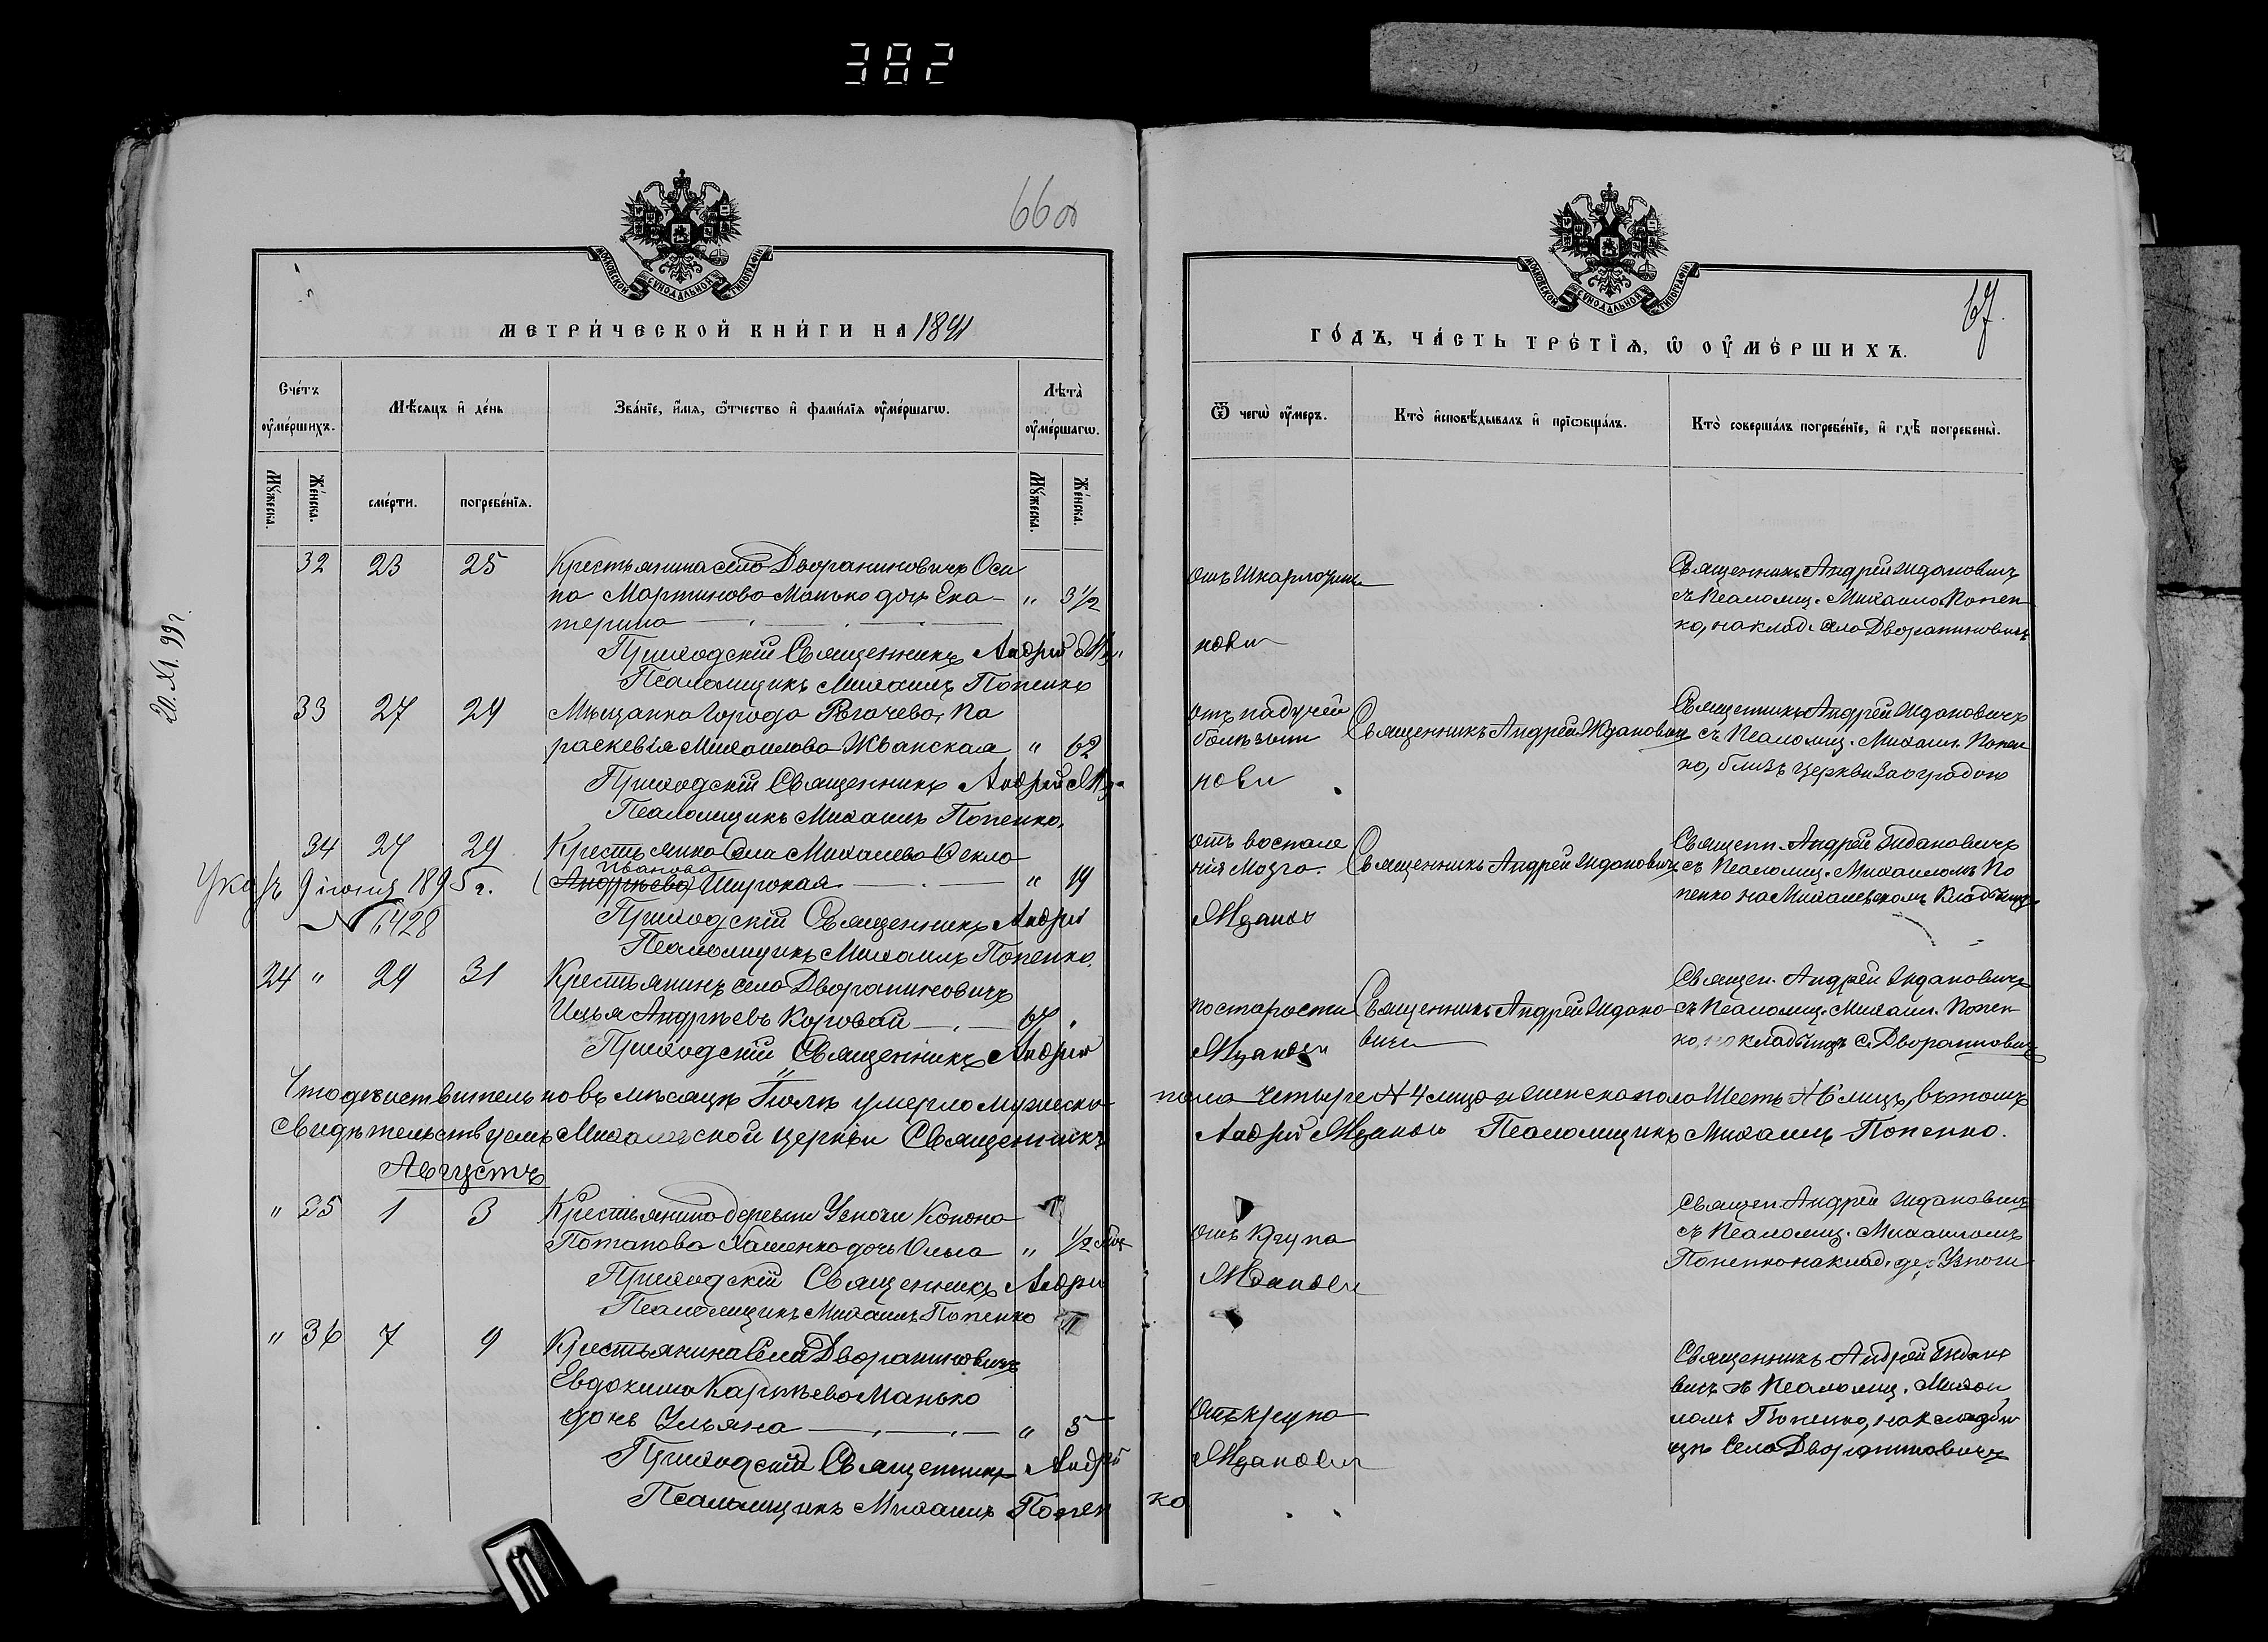 382
66об
МОСКОВСКОЙ СѴНОДАЛЬНОЙ ТИПОГРАФІИ
МЕТРИ́ЧЕСКОЙ КНИ́ГИ НА 1891
Сче́тъ ᲂу҆ме́ршихъ.
Мѣ́сяцъ и҆ де́нь
Зва́нїе, и҆́мѧ, ѻ҆́тчество и҆ фами́лїѧ ᲂу҆ме́ршагѡ.
Лѣта̀ ᲂу҆ме́ршагѡ.
Мꙋ́жеска.
Же́нска.
сме́рти.
погребе́нїѧ.
Мꙋ́жеска.
Же́нска.
32 23 25 Крестьянина села Двораниновичъ Оси
па Мартинова Манько дочь Ека- " 3½
терина
Приходскій Священникъ Андрей Ж
Псаломщикъ Михаилъ Попенко
33 27 29 Мѣщанка Города Рогачева, Па
раскевія Михаилова Жванская " 62
Приходскій Священникъ Андрей Жда
Псаломщикъ Михаилъ Попенко.
34 27 29 Крестьянка Села Михалева Фекла
Иванова
Указъ 9 іюня 1895 г. (Андреева) Широкая " 19
№ 6428
Приходскій Священникъ Андрей
Псаломщикъ Михаилъ Попенко.
24 " 29 31 Крестьянинъ села Двораниновичъ
Илья Андреевъ Коровай 67 "
Приходскій Священникъ Андрей
Что действительно въ мѣсяцѣ Іюлѣ умерло мужеска
свидѣтельствуемъ Михалевской церкви Священникъ
Августъ
" 35 1 3 Крестьянина деревни Узноги Конона
Потапова Хаменко дочь Ольга " ½ год
Приходскій Священникъ Андрей
Псаломщикъ Михаилъ Попенко
" 36 7 9 Крестьянина Села Двораниновичъ
Евдокима Карпѣева Манько
дочь Ульяна " 5
Приходскій Священникъ Андрей
Псаломщикъ Михаилъ Попен
20. XI. 99 г.
МОСКОВСКОЙ СѴНОДАЛЬНОЙ ТИПОГРАФІИ
67.
ГО́ДЪ, ЧА́СТЬ ТРЕ́ТЇѦ, Ѡ҆ ОУ҆МЕ́РШИХЪ.
Ѿ чегѡ̀ ᲂу҆́меръ.
Кто̀ и҆сповѣ́дывалъ и҆ прїѡбща́лъ.
Кто̀ соверша́лъ погребе́нїе, и҆ гдѣ̀ погребены̀.
отъ Шкарлотины
Священникъ Андрей Жданович
съ Псаломщ. Михаилом Попен
ко, на клад. села Дворанинович
нович
отъ падучей
болѣзни Священникъ Андрей Жданович
Священникъ Андрей Ждановичъ
съ Псаломщ. Михаил. Попен
ко, близь церкви за оградою
нович
отъ воспале
нія Мозга. Священникъ Андрей Жданович
Священн. Андрей Ждановичъ
съ Псаломщ. Михаиломъ По
пенко на Михалевскомъ кладбищѣ
Жданов
по старости Священникъ Андрей Ждано-
вич
Священ. Андрей Ждановичъ
съ Псаломщ. Михаил. Попен
ко, на кладбищѣ с. Дворанинович
Жданович
пола Четыре № 4 лица и женска пола Шесть № 6 лицъ, въ томъ
Андрей Жданович Псаломщикъ Михаилъ Попенко.
отъ Крупа
Священ. Андрей Жданович
съ Псаломщ. Михаиломъ
Попенко на клад. дер. Узноги
Жданович
отъ крупа
Священникъ Андрей Ждано
вичъ съ Псаломщ. Михаи
ломъ Попенко, на кладби
щѣ Села Двораниновичъ
Жданович
ко